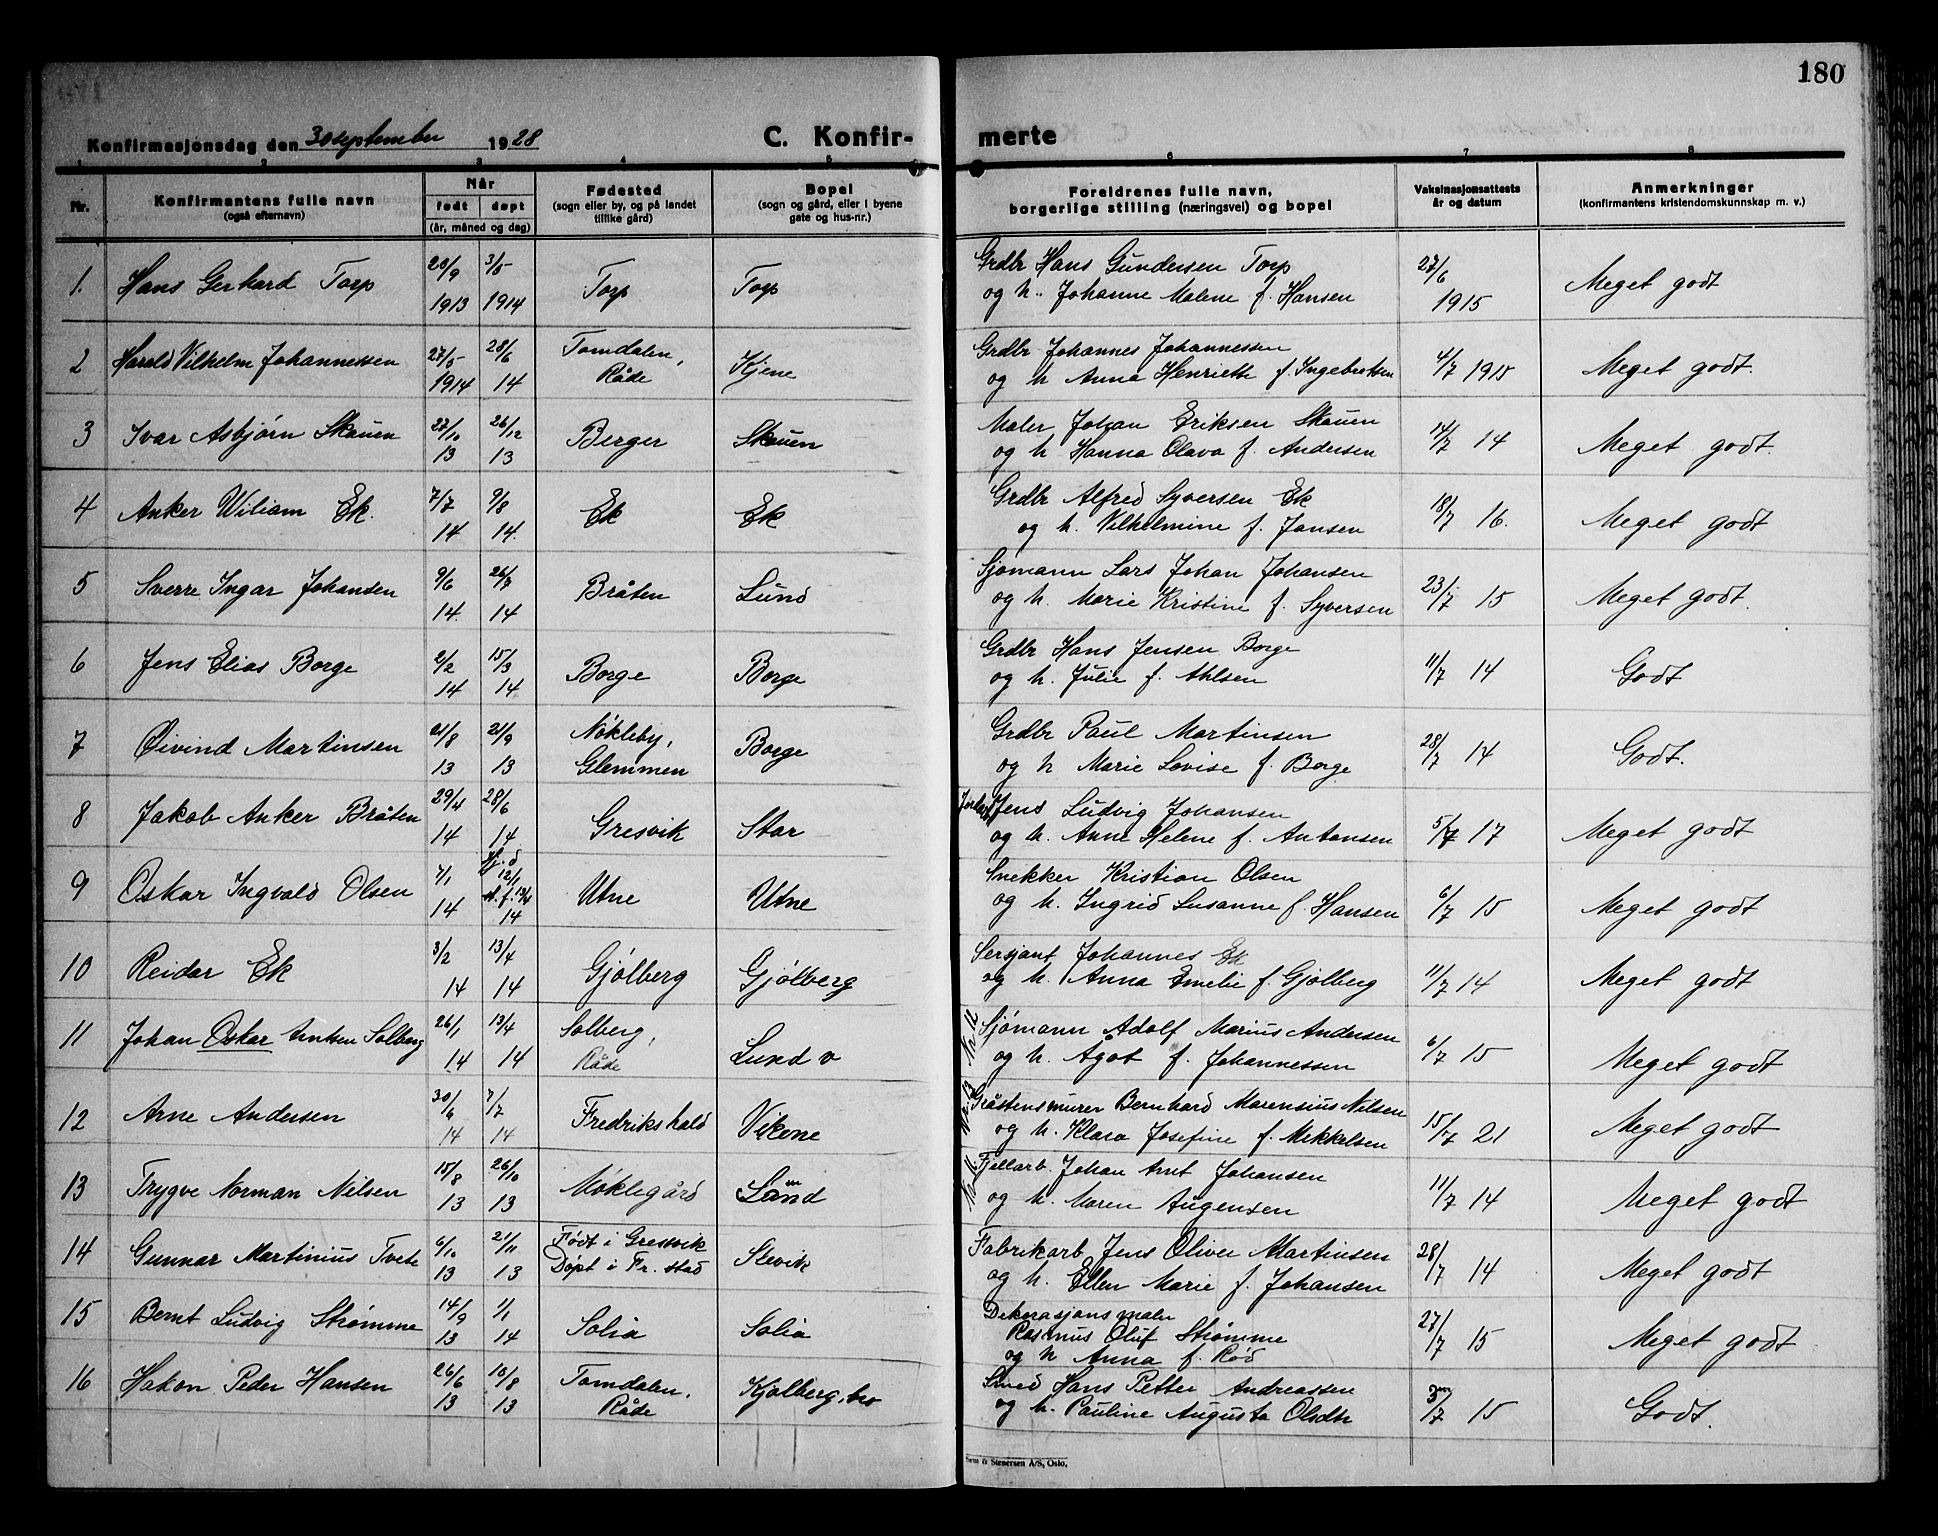 180
Konfirmasjonsdag den 30 september 1928
C. Konfirmerte
1 2 3 4 5 6 7 8
Nr.
Konfirmantens fulle navn
(også efternavn)
Når
født døpt
(år, måned og dag)
Fødested
(sogn eller by, og på landet
tillike gård)
Bopel
(sogn og gård, eller i byene
gate og hus-nr.)
Foreldrenes fulle navn,
borgerlige stilling (næringsvei) og bopel
Vaksinasjonsattests
år og datum
Anmerkninger
(konfirmantens kristendomskunnskap m. v.)
1. Hans Gerhard Torp 20/9 1913 3/5 1914 Torp Torp
Grdbr Hans Gundersen Torp
og h. Johanne Malene f. Hansen 27/6 1915 Meget godt
2 Harald Vilhelm Johannessen 27/5 1914 28/6 14 Tomdalen, Råde Kjene
Grdbr Johannes Johannessen
og h Anna Henriette f. Ingebretsen 4/7 1915 Meget godt.
3 Ivar Asbjørn Skauen 27/10 13 26/12 13 Berger Skauen
Maler Johan Eriksen Skauen
og h Hanna Olava f. Andersen 14/7 14 Meget godt.
4 Anker Wiliam Ek. 7/7 14 9/8 14 Ek Ek
Grdbr Alfred Syversen Ek
og h. Vilhelmine f. Jansen 18/7 16. Meget godt
5 Sverre Ingar Johansen 9/6 14 26/7 14 Bråten Lund
Sjømann Lars Johan Johansen
og h. Marie Kristine f. Syversen 23/7 15 Meget godt.
6 Jens Elias Borge 2/2 14 15/3 14 Borge Borge
Grdbr Hans Jensen Borge
og h. Julie f. Ahlsen 11/7 14 Godt
7 Øivind Martinsen 21/8 13 21/9 13 Nøkleby, Glemmen Borge
Grdbr Paul Martinsen
og h Marie Lovise f. Borge 28/7 14 Godt.
8 Jakob Anker Bråten 29/4 14 28/6 14 Gresvik Star
Jens Ludvig Johansen
og h. Anne Helene f. Antonsen 5/7 17 Meget godt
9 Oskar Ingvald Olsen 7/1 14 Hj. d 12/1 st. f. 13/4 14 Utne Utne
Snekker Kristian Olsen
og h. Ingrid Susanne f. Hansen 6/7 15 Meget godt
10 Reidar Ek 3/2 14 13/4 14 Gjølberg Gjølberg
Sersjant Johannes Ek
og h. Anna Emelie f. Gjølberg 11/7 14 Meget godt
11 Johan Oskar Arntsen Solberg 26/1 14 13/4 14 Solberg, Råde Lund v
Nr 12 Sjømann Adolf Marius Andersen
og h. Ågot f. Johannessen 6/7 15 Meget godt
12 Arne Andersen 30/6 14 7/7 14 Fredrikshald Vikene
Nr. 13 Gråstensmurer Bernhard Marensius Nilsen
og h. Klara Josefine f. Mekkelsen 15/7 21 Meget godt
13 Trygve Norman Nilsen 15/8 13 26/10 13 Møklegård Lund
Nr 11. Fjellarb. Johan Arnt Johansen
og h. Maren Augensen 11/7 14 Meget godt
14 Gunnar Martinius Tvete 6/10 13 21/11 13 Født i Gressvik Døpt i Fr. stad Slevik
Fabrikarb Jens Oliver Martinsen
og h. Ellen Marie f. Johansen 28/7 14 Meget godt
15 Bernt Ludvig Strømme 14/9 13 1/1 14 Solia Solia
Dekorasjonsmaler
Rasmus Oluf Strømme
og h Anna f. Rød 27/7 15 Meget godt
16 Håkon Peder Hansen 26/6 13 10/8 13 Tomdalen, Råde Kjølberg, bro
Smed Hans Petter Andreassen
og h. Pauline Augusta Olsdtr 15 Godt.
Sem & Stenersen A/S, Oslo.